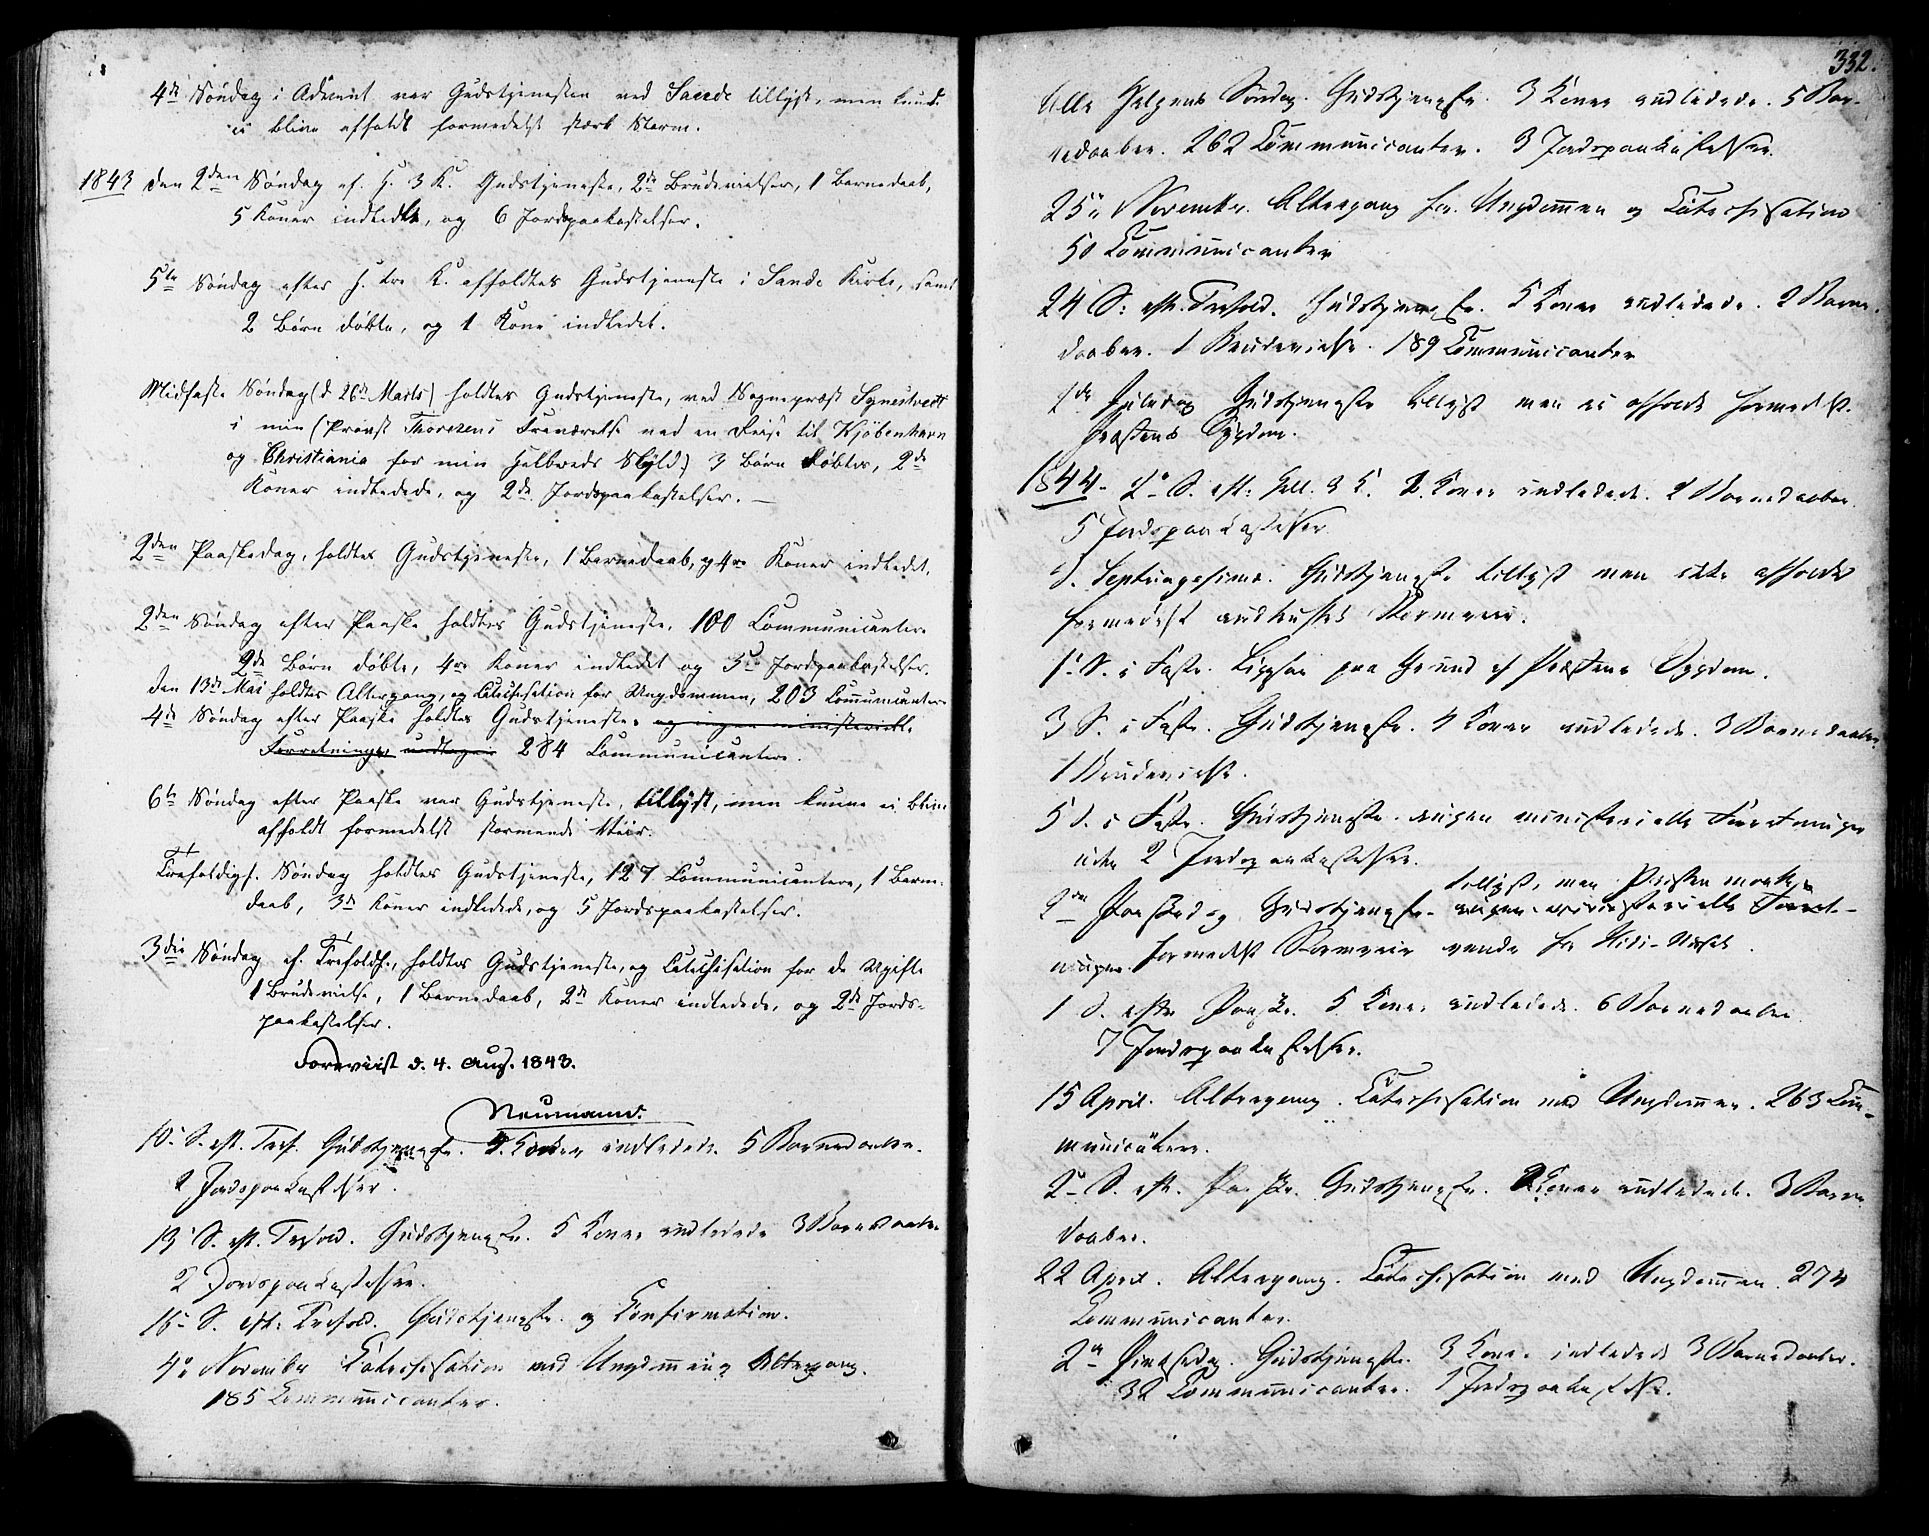 4de Søndag i Advent var Gudstjenesten ved Sande tillyst, men kunde
ei blive afholdt formedelst stærk Storm.
1843 den 2den Søndag ef. H. 3 K. Gudstjeneste, 2de Brudevielser, 1 Barnedaab,
5 Koner indledt, og 6 Jordspaakastelser.
5te Søndag efter H. tre K. afholdtes Gudstjeneste i Sande Kirke, samt
2 Børn døbte, og 1 Kone indledet.
Midfaste Søndag (d 26de Marts) holdtes Gudstjeneste, ved Sognepræst Synestvedt
i min (Provst Thoresens Fraværelse ved en Reise til Kjøbenhavn
og Christiania for min Helbreds Skyld.) 3 Børn døbtes, 2de
Koner indledede, og 2de Jordspaakastelser. —
2den Paaskedag, holdtes Gudstjeneste, 1 Barnedaab, og 4re Koner indledet.
2den Søndag efter Paaske holdtes Gudstjeneste, 100 Communicantere
2de Børn døbte, 4re Koner indledet og 3de Jordspaakastelser.
den 13de Mai holdtes Altergang, og Catechisation for Ungdommen, 203 Communicantere
4de Søndag efter Paaske holdtes Gudstjeneste, og ingen ministerielle
Forretninger undtagen 284 Communicantere.
6te Søndag efter Paaske var Gudstjeneste, tillyst, men kunne ei blive
afholdt formedelst stormende Veir.
Trefoldigh. Søndag holdtes Gudstjeneste, 127 Communicantere, 1 Barne-
daab, 3de Koner indledede, og 5 Jordspaakastelser.
3die Søndag ef. Trefoldh., holdtes Gudstjeneste, og Catechisation for de Ugifte
1 Brudevielse, 1 Barnedaab, 2de Koner indledede, og 2de Jords-
paakastelser.
Foreviist d. 4. Aug. 1843.
Neumann.
10. S. eft. Tref. Gudstjeneste. 4. Koner indledede. 5 Barnedaaber.
2 Jordspaakastelser.
13 S. eft. Trefold. Gudstjeneste. 5 Koner indledede 3 Barnedaabe
2 Jordspaakastelser.
16 S. eft. Trefold. Gudstjeneste og Confirmation.
4de November Catechisation med Ungdommen og Altergang.
185 Communicanter.
332.
Alle Helgens Søndag. Gudstjeneste. 3 Koner indledede. 5 Bar-
nedaaber. 262 Communicanter. 3 Jordspaakastelser.
25de November. Altergang for Ungdommen og Catechisation
50 Communicanter
24 S. eft. Trefold. Gudstjeneste. 5 Koner indledede. 2 Barne-
daaber. 1 Brudevielse. 189 Communicanter
1ste Juledag Gudstjeneste tillyst men ei afholdt formedelst
Præstens Sygdom.
1844. 2den S. eft. Hell. 3 K. 2. Koner indledede. 2 Barnedaaber.
5 Jordspaakastelser.
S. Septuagesima. Gudstjeneste tillyst men ikke afholdt
formedelst indtruffet Stormveir.
1. S. i Faste. Ligesaa paa Grund af Præstens Sygdom.
3 S. i Faste. Gudstjeneste. 4 Koner indledede. 3 Barnedaaber
1 Brudevielse.
5 S. i Faste. Gudstjeneste. ingen ministerielle Forretninger
uden 2 Jordspaakastelser.
tillyst, men Præsten maatte
2den Paaskedag Gudstjeneste ingen ministerielle Forret-
ninger. formedelst Stormveir vende
1 S. efter Paaske. 5 Koner indledede. 6 Barnedaaber.
7 Jordspaakastelser.
15 April. Altergang. Catechisation med Ungdommen. 263 Com-
municantere.
2den S. eft. Paaske. Gudstjeneste. 2 Koner indledede. 3 Barne
daaber.
22 April. Altergang. Catechisation med Ungdommen. 274
Communicanter.
2den Pintsedag. Gudstjeneste. 3 Koner indledede 3 Barnedaaber.
32 Communicanter. 1 Jordspaakastelse.